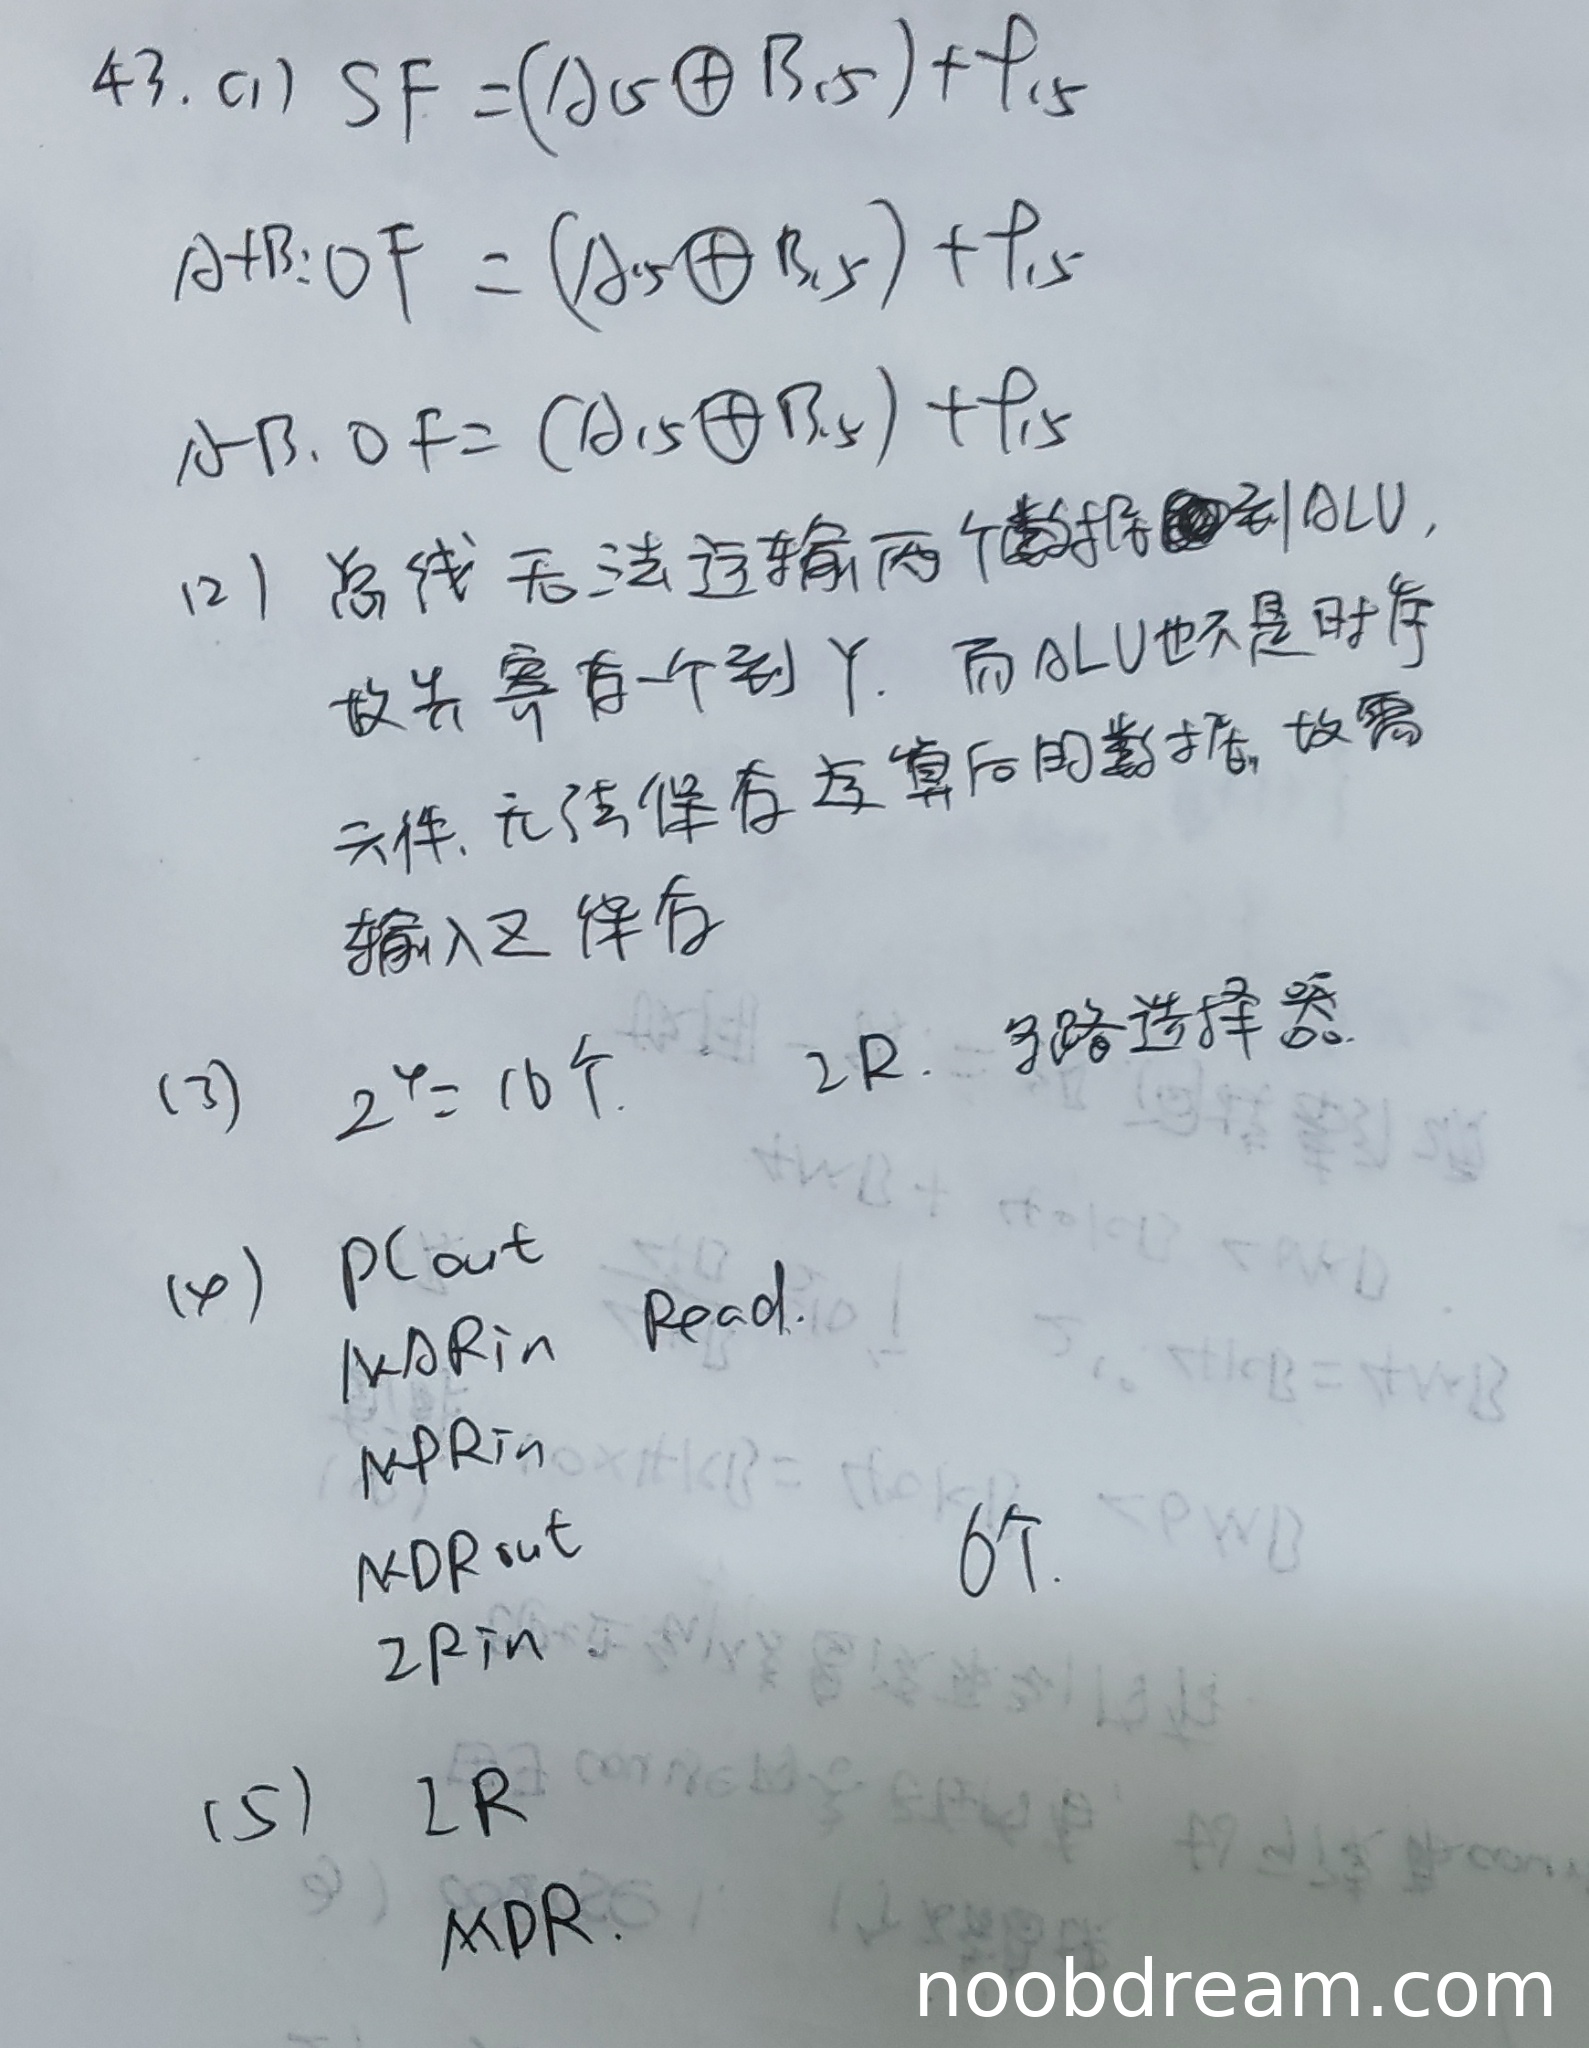 43. (1) SF = (A15 ⊕ B15) + F15
A+B: OF = (A15 ⊕ B15) + F15
A-B. OF = (A15 ⊕ B15) + F15
(2) 总线无法运输两个数据到ALU,
故先寄存一个到Y. 而ALU也不是时序
元件. 无法保存运算后的数据, 故需
输入Z保存
(3) 2^4 = 16个. IR. 多路选择器.
(4) PCout
MARin Read.
MDRin
MDRout 6个.
IRin.
(5) IR
MDR.
noobdream.com